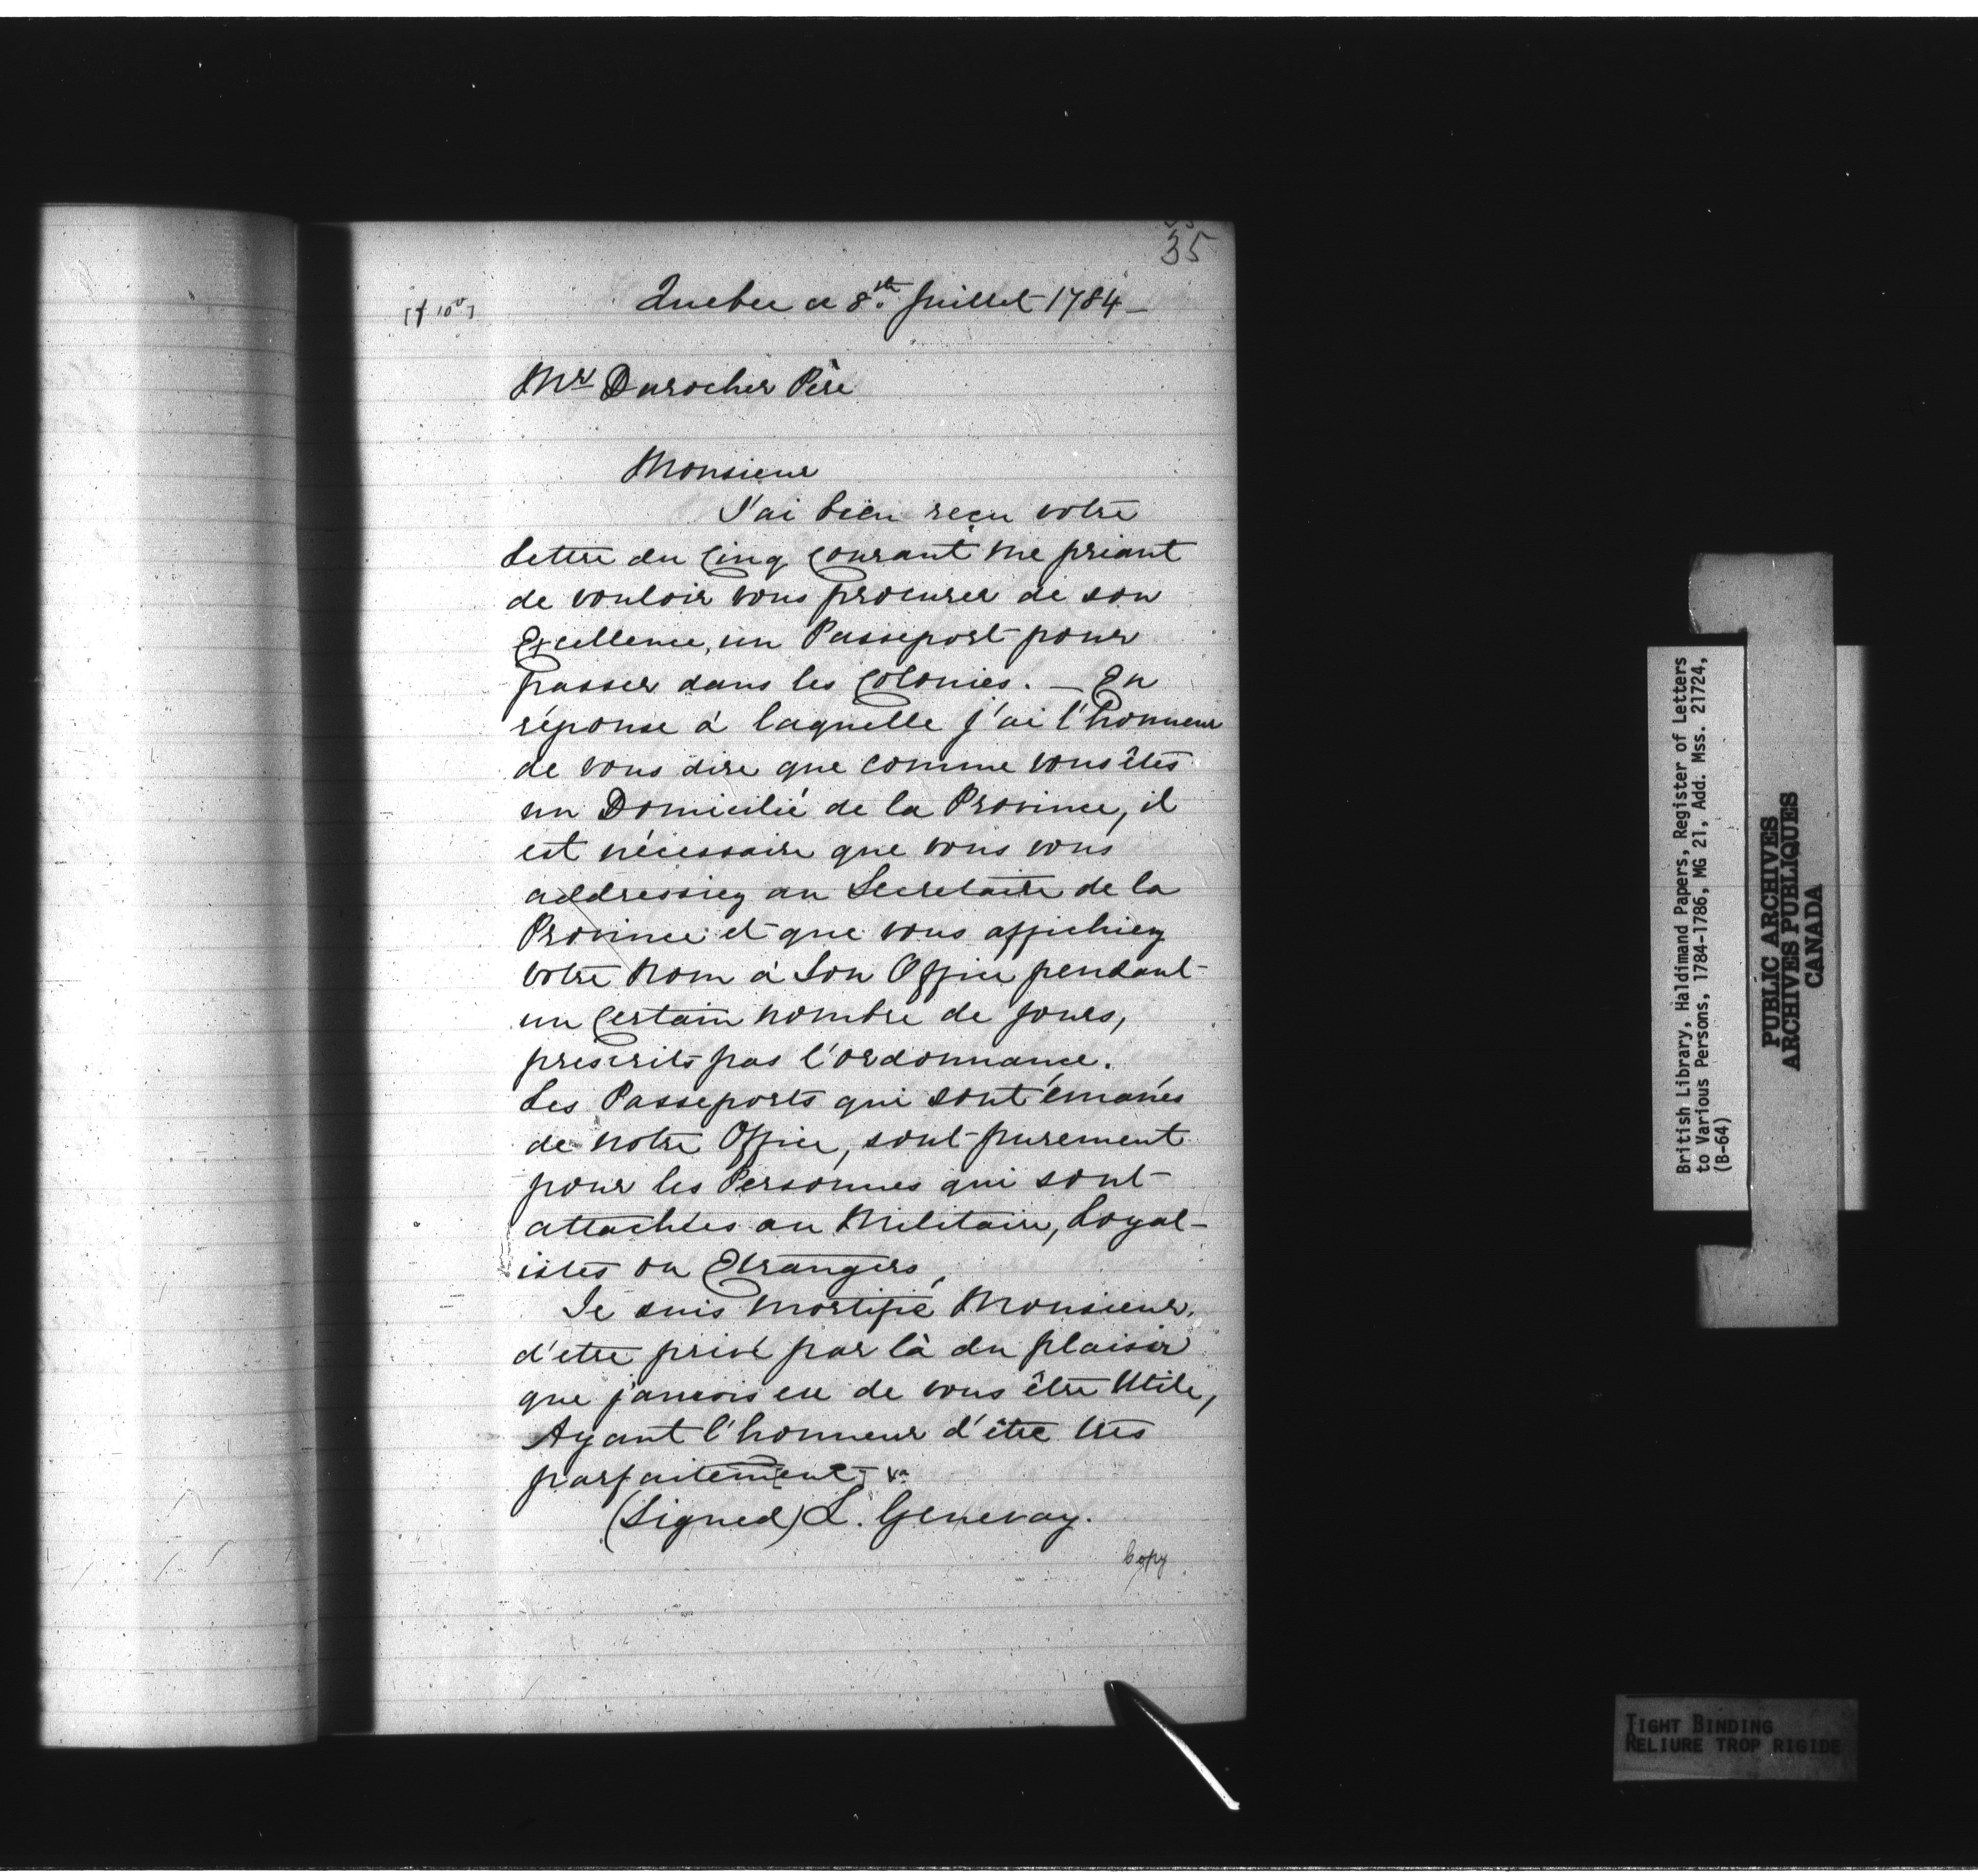 35
[f 10v]
Quebec ce 8th Juillet 1784 —
Mr Durocher Père
Monsieur
J'ai bien reçu votre
Lettre du Cinq Courant me priant
de vouloir vous procurer de son
Excellence, un Passeport pour
passer dans les Colonies. — En
réponse à laquelle j'ai l'honneur
de vous dire que comme vous êtes
un Domicilié de la Province, il
est nécessaire que vous vous
addressiez au Secretaire de la
Province et que vous affichiez
votre Nom à Son Office pendant
un Certain nombre de jours,
prescrits par l'ordonnance.
Les Passeports qui sont émanés
de notre Office, sont purement
pour les Personnes qui sont
attachées au Militaire, Loyal-
istes ou Etrangers,
Je suis mortifié Monsieur,
d'etre privé par là du plaisir
que j'aurois eu de vous être Utile,
Ayant l'honneur d'être très
parfaitement, &a
(Signed) L. Genevay.
Copy
British Library, Haldimand Papers, Register of Letters
to Various Persons, 1784-1786, MG 21, Add. Mss. 21724,
(B-64)
PUBLIC ARCHIVES
ARCHIVES PUBLIQUES
CANADA
TIGHT BINDING
RELIURE TROP RIGIDE